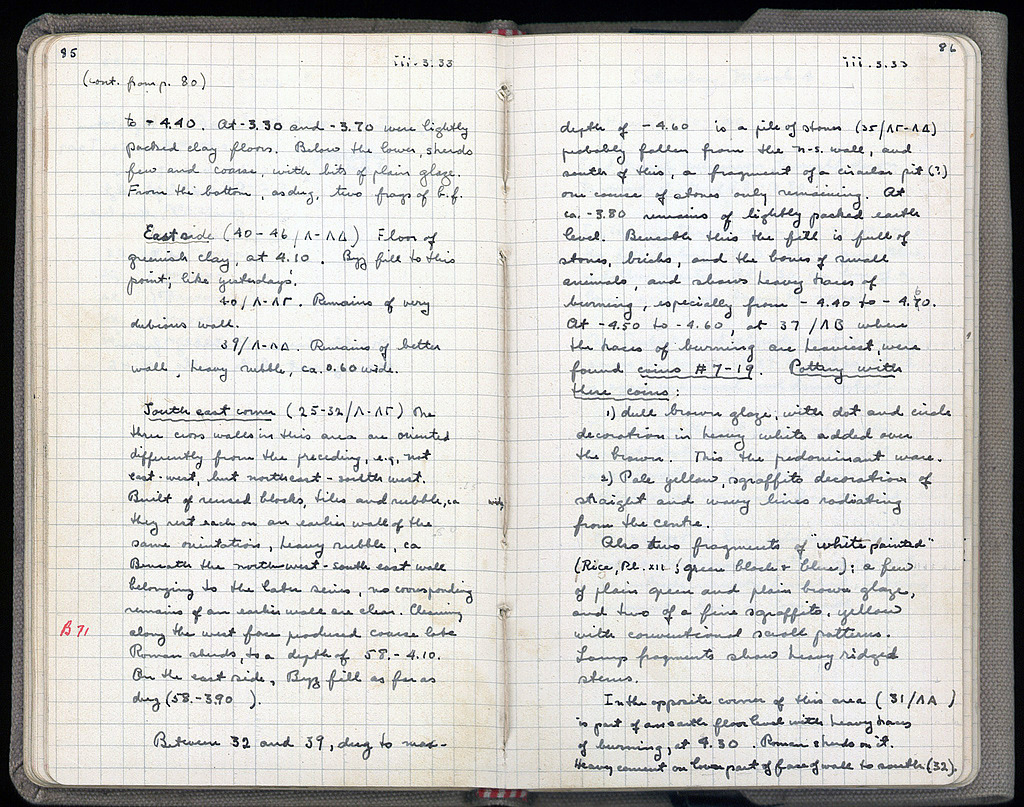 85
iii.3.33
(cont. from p. 80)
to - 4.40. At -3.30 and -3.70 were lightly
packed clay floors. Below the lower, sherds
few and coarse, with bits of plain glaze.
From the bottom, as dug, two frags of b.f.
East side (40-46/Λ-ΛΔ) Floor of
greenish clay, at 4.10. Byz fill to this
point; like yesterday's.
40/Λ-ΛΓ. Remains of very
dubious wall.
39/Λ-ΛΔ. Remains of better
wall, heavy rubble, ca. 0.60 wide.
South east corner (25-32/Λ-ΛΓ) The
three cross walls in this area are oriented
differently from the preceding, e.g., not
east-west, but northeast-southwest.
Built of reused blocks, tiles and rubble, ca wide,
they rest each on an earlier wall of the
same orientation, heavy rubble, ca
Beneath the north-west-south east wall
belonging to the later series, no corresponding
remains of an earlier wall are clear. Cleaning
B71
along the west face produced coarse late
Roman sherds, to a depth of 58.-4.10.
On the east side, Byz fill as far as
dug (58.-3.90 ).
Between 32 and 39, dug to max-
86
iii.3.33
depth of -4.60 is a pile of stones (35/ΛΓ-ΛΔ)
probably fallen from the n-s. wall, and
south of this, a fragment of a circular pit (?)
one course of stones only remaining. At
ca. -3.80 remains of lightly packed earth
level. Beneath this the fill is full of
stones, bricks, and the bones of small
animals, and shows heavy traces of
burning, especially from -4.40 to -4.60.
At -4.50 to -4.60, at 37/ΛB where
the traces of burning are heaviest, were
found coins #7-19. Pottery with
these coins:
1) dull brown glaze, with dot and circle
decoration in heavy white added over
the brown. This the predominant ware.
2) Pale yellow, sgraffito decoration of
straight and wavy lines radiating
from the centre.
Also two fragments of "white painted"
(Rice, Pl. XII; green black + blue); a few
of plain green and plain brown glaze,
and two of a fine sgraffito, yellow
with conventional scroll patterns.
Lamp fragments show heavy ridged
stems.
In the opposite corner of this area (31/ΛA )
is part of an earth floor level with heavy traces
of burning, at 4.30. Roman sherds on it.
Heavy cement on lower part of face of wall to south (32).